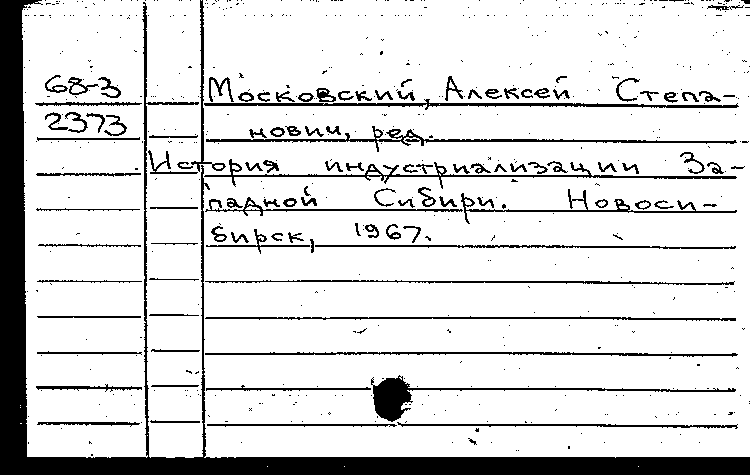 68-3 Московский, Алексей Степа-
2373 нович, ред.
История индустриализации За-
падной Сибири. Новоси-
бирск, 1967.